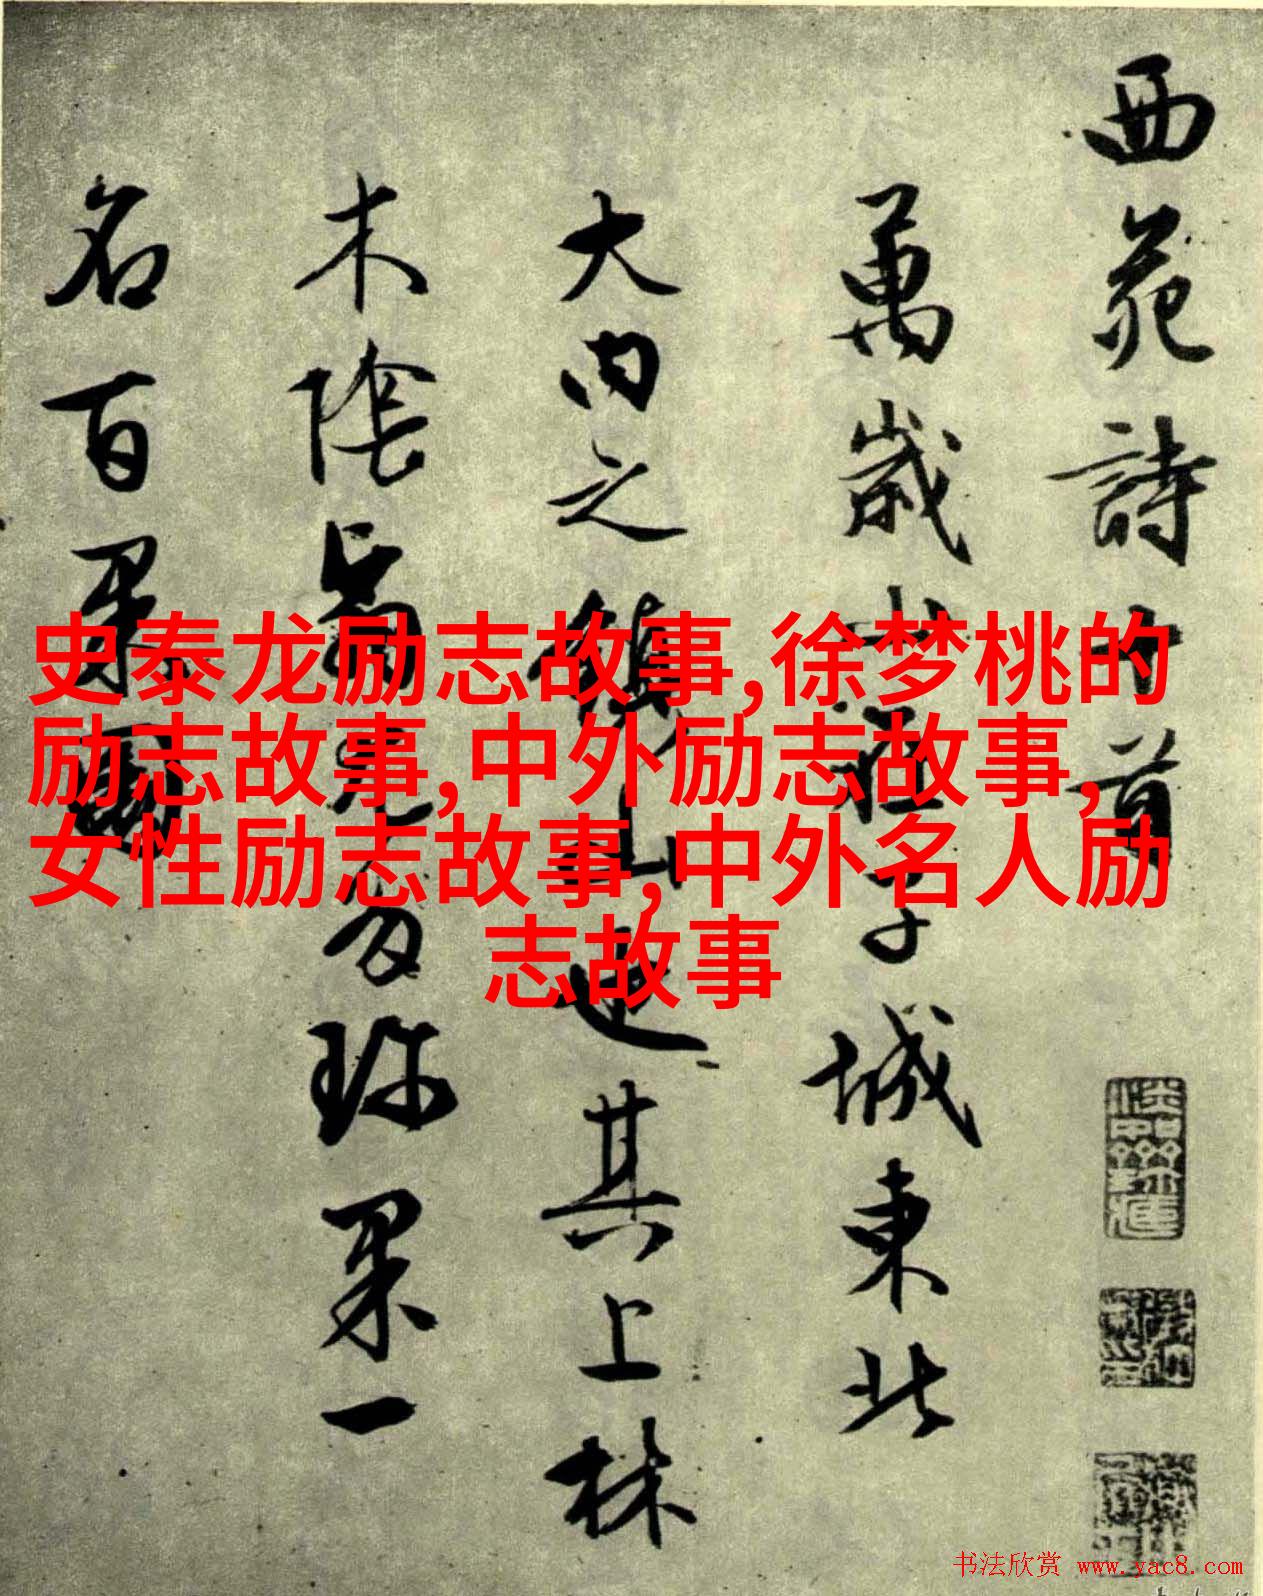 西苑詩十首
萬歲山在子城東北
大內之鎮山也其上林
木陰翳尤多珍果一
名百果園
史泰龙励志故事,徐梦桃的
励志故事,中外励志故事,
女性励志故事,中外名人励
志故事
书法欣赏 www.yac8.com